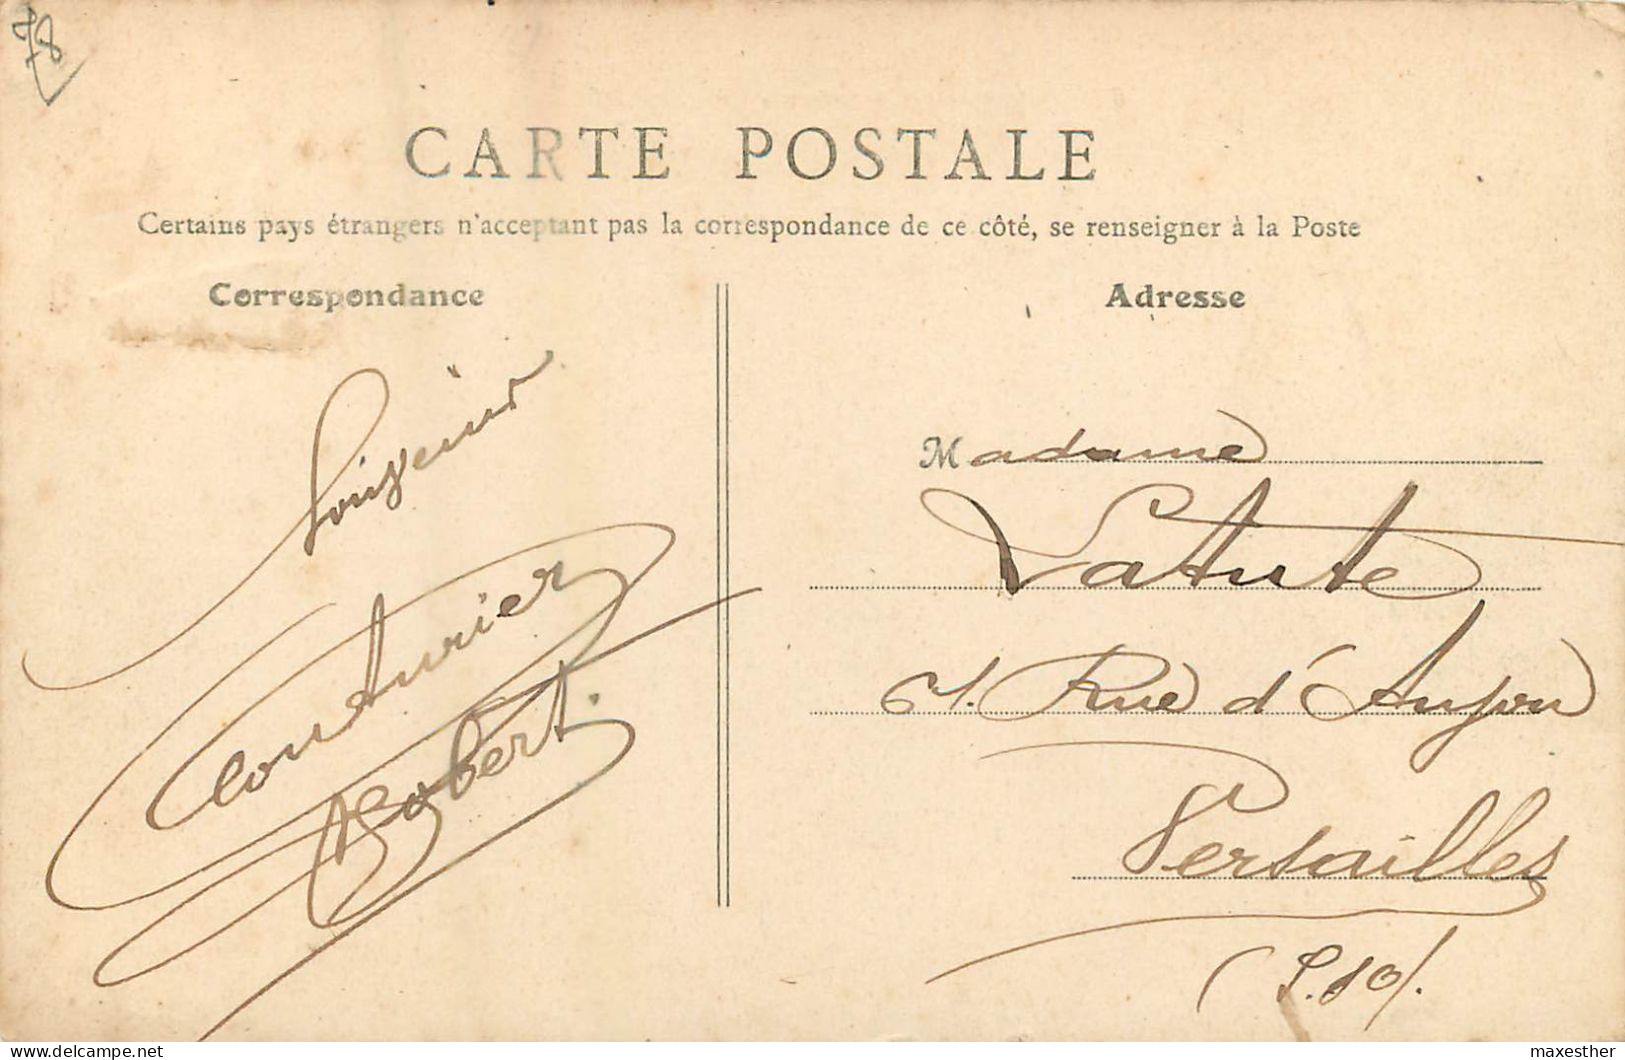 78
CARTE POSTALE
Certains pays étrangers n'acceptant pas la correspondance de ce côté, se renseigner à la Poste
Correspondance
Souvenir
Couturier
Robert.
Adresse
Madame
Latute
61. Rue d'Anjou
Versailles
(S.&O).
maxesther